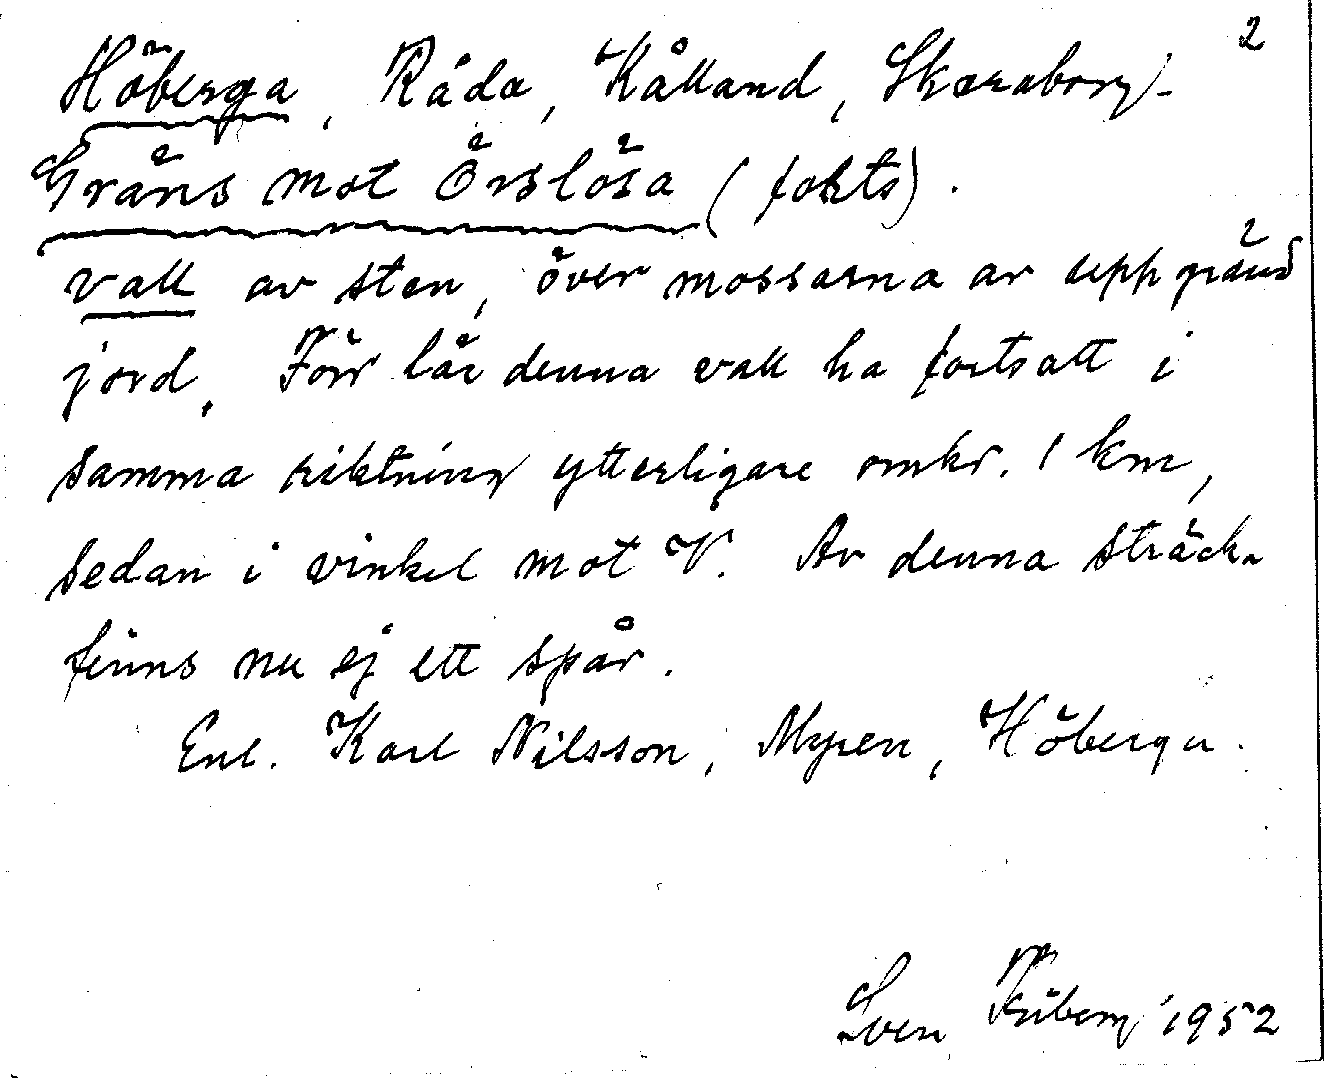 2
Höberga, Råda, Kålland, Skaraborg.
Gräns mot Örslösa (forts).
vall av sten, över mossarna av uppgrävd
jord. Förr lär denna vall ha fortsatt i
samma riktning ytterligare omkr. 1 km,
sedan i vinkel mot V. Av denna sträcka
finns nu ej ett spår.
Enl. Karl Nilsson, Myren, Höberga.
Sven Friberg 1952